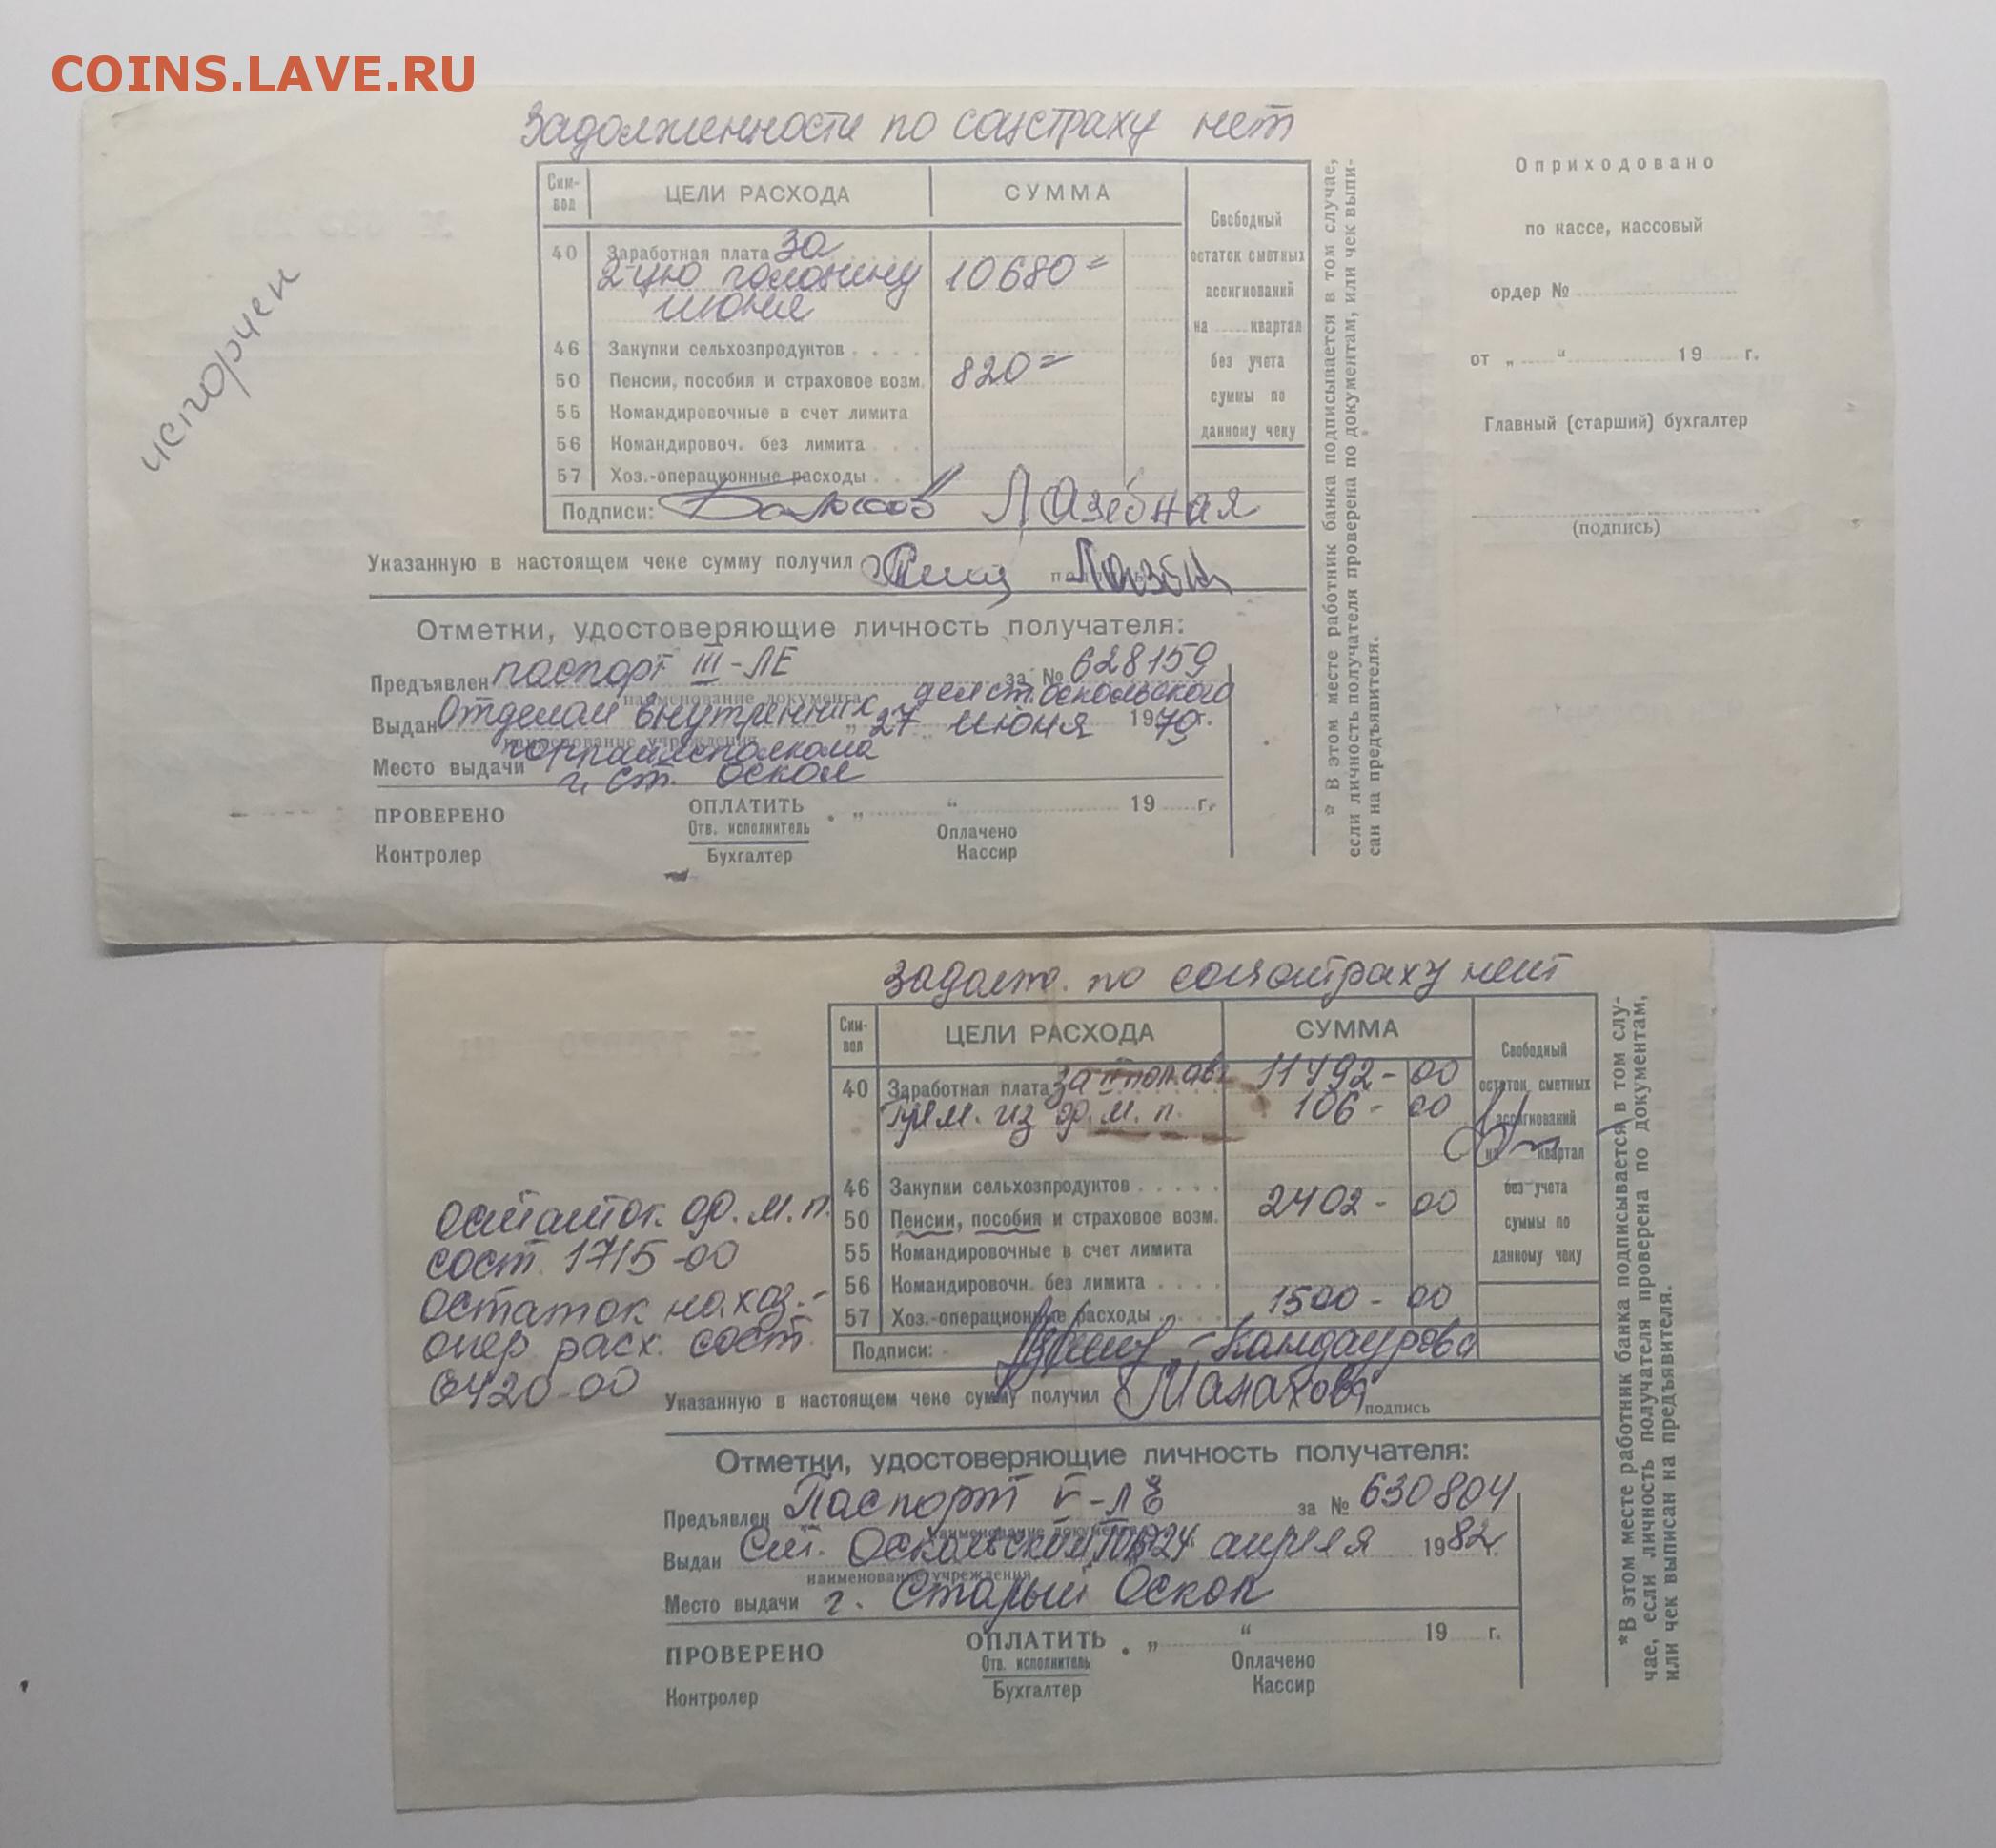 COINS.LAVE.RU
задолженности по соцстраху нет
испорчен
Сим-
вол
ЦЕЛИ РАСХОДА
СУММА
40 Заработная плата за
2-ую половину 10680=
июня
46 Закупки сельхозпродуктов . . . .
50 Пенсии, пособия и страховое возм. 820=
55 Командировочные в счет лимита
56 Командировоч. без лимита . . .
57 Хоз.-операционные расходы . . .
Свободный
остаток сметных
ассигнований
на ...... квартал
без учета
суммы по
данному чеку
Подписи: Лазебная
Указанную в настоящем чеке сумму получил
Отметки, удостоверяющие личность получателя:
Предъявлен паспорт III-ЛЕ за № 628159
наименование документа
Выдан Отделом внутренних дел ст. оскольского
„ 27 „ июня 1979г.
наименование учреждения
горрайисполкома
Место выдачи г. ст. оскол
ПРОВЕРЕНО
Контролер
ОПЛАТИТЬ
Отв. исполнитель
Бухгалтер
„ “ 19 г.
Оплачено
Кассир
☆ В этом месте работник банка подписывается в том случае,
если личность получателя проверена по документам, или чек выпи-
сан на предъявителя.
Оприходовано
по кассе, кассовый
ордер №
от „ “ 19 г.
Главный (старший) бухгалтер
(подпись)
задолж. по соцстраху нет
Сим-
вол
ЦЕЛИ РАСХОДА
СУММА
40 Заработная плата за II пол. авг 11492-00
прем. из ф.м.п. 106-00
46 Закупки сельхозпродуктов . . . . .
50 Пенсии, пособия и страховое возм. 2402-00
55 Командировочные в счет лимита
56 Командировочн. без лимита . . . .
57 Хоз.-операционные расходы . . . . 1500-00
Свободный
остаток сметных
ассигнований
на квартал
без учета
суммы по
данному чеку
остаток ф.м.п.
сост. 1715-00
остаток на хоз.-
опер расх. сост.
6420-00
Подписи: Кандаурова
Указанную в настоящем чеке сумму получил Малахова
подпись
Отметки, удостоверяющие личность получателя:
Предъявлен Паспорт V-ЛЕ за № 630804
наименование документа
Выдан Ст. Оскольским 24 апреля 1982г.
наименование учреждения
Место выдачи г. Старый Оскол
ПРОВЕРЕНО
Контролер
ОПЛАТИТЬ
Отв. исполнитель
Бухгалтер
„ “ 19 г.
Оплачено
Кассир
*В этом месте работник банка подписывается в том слу-
чае, если личность получателя проверена по документам,
или чек выписан на предъявителя.